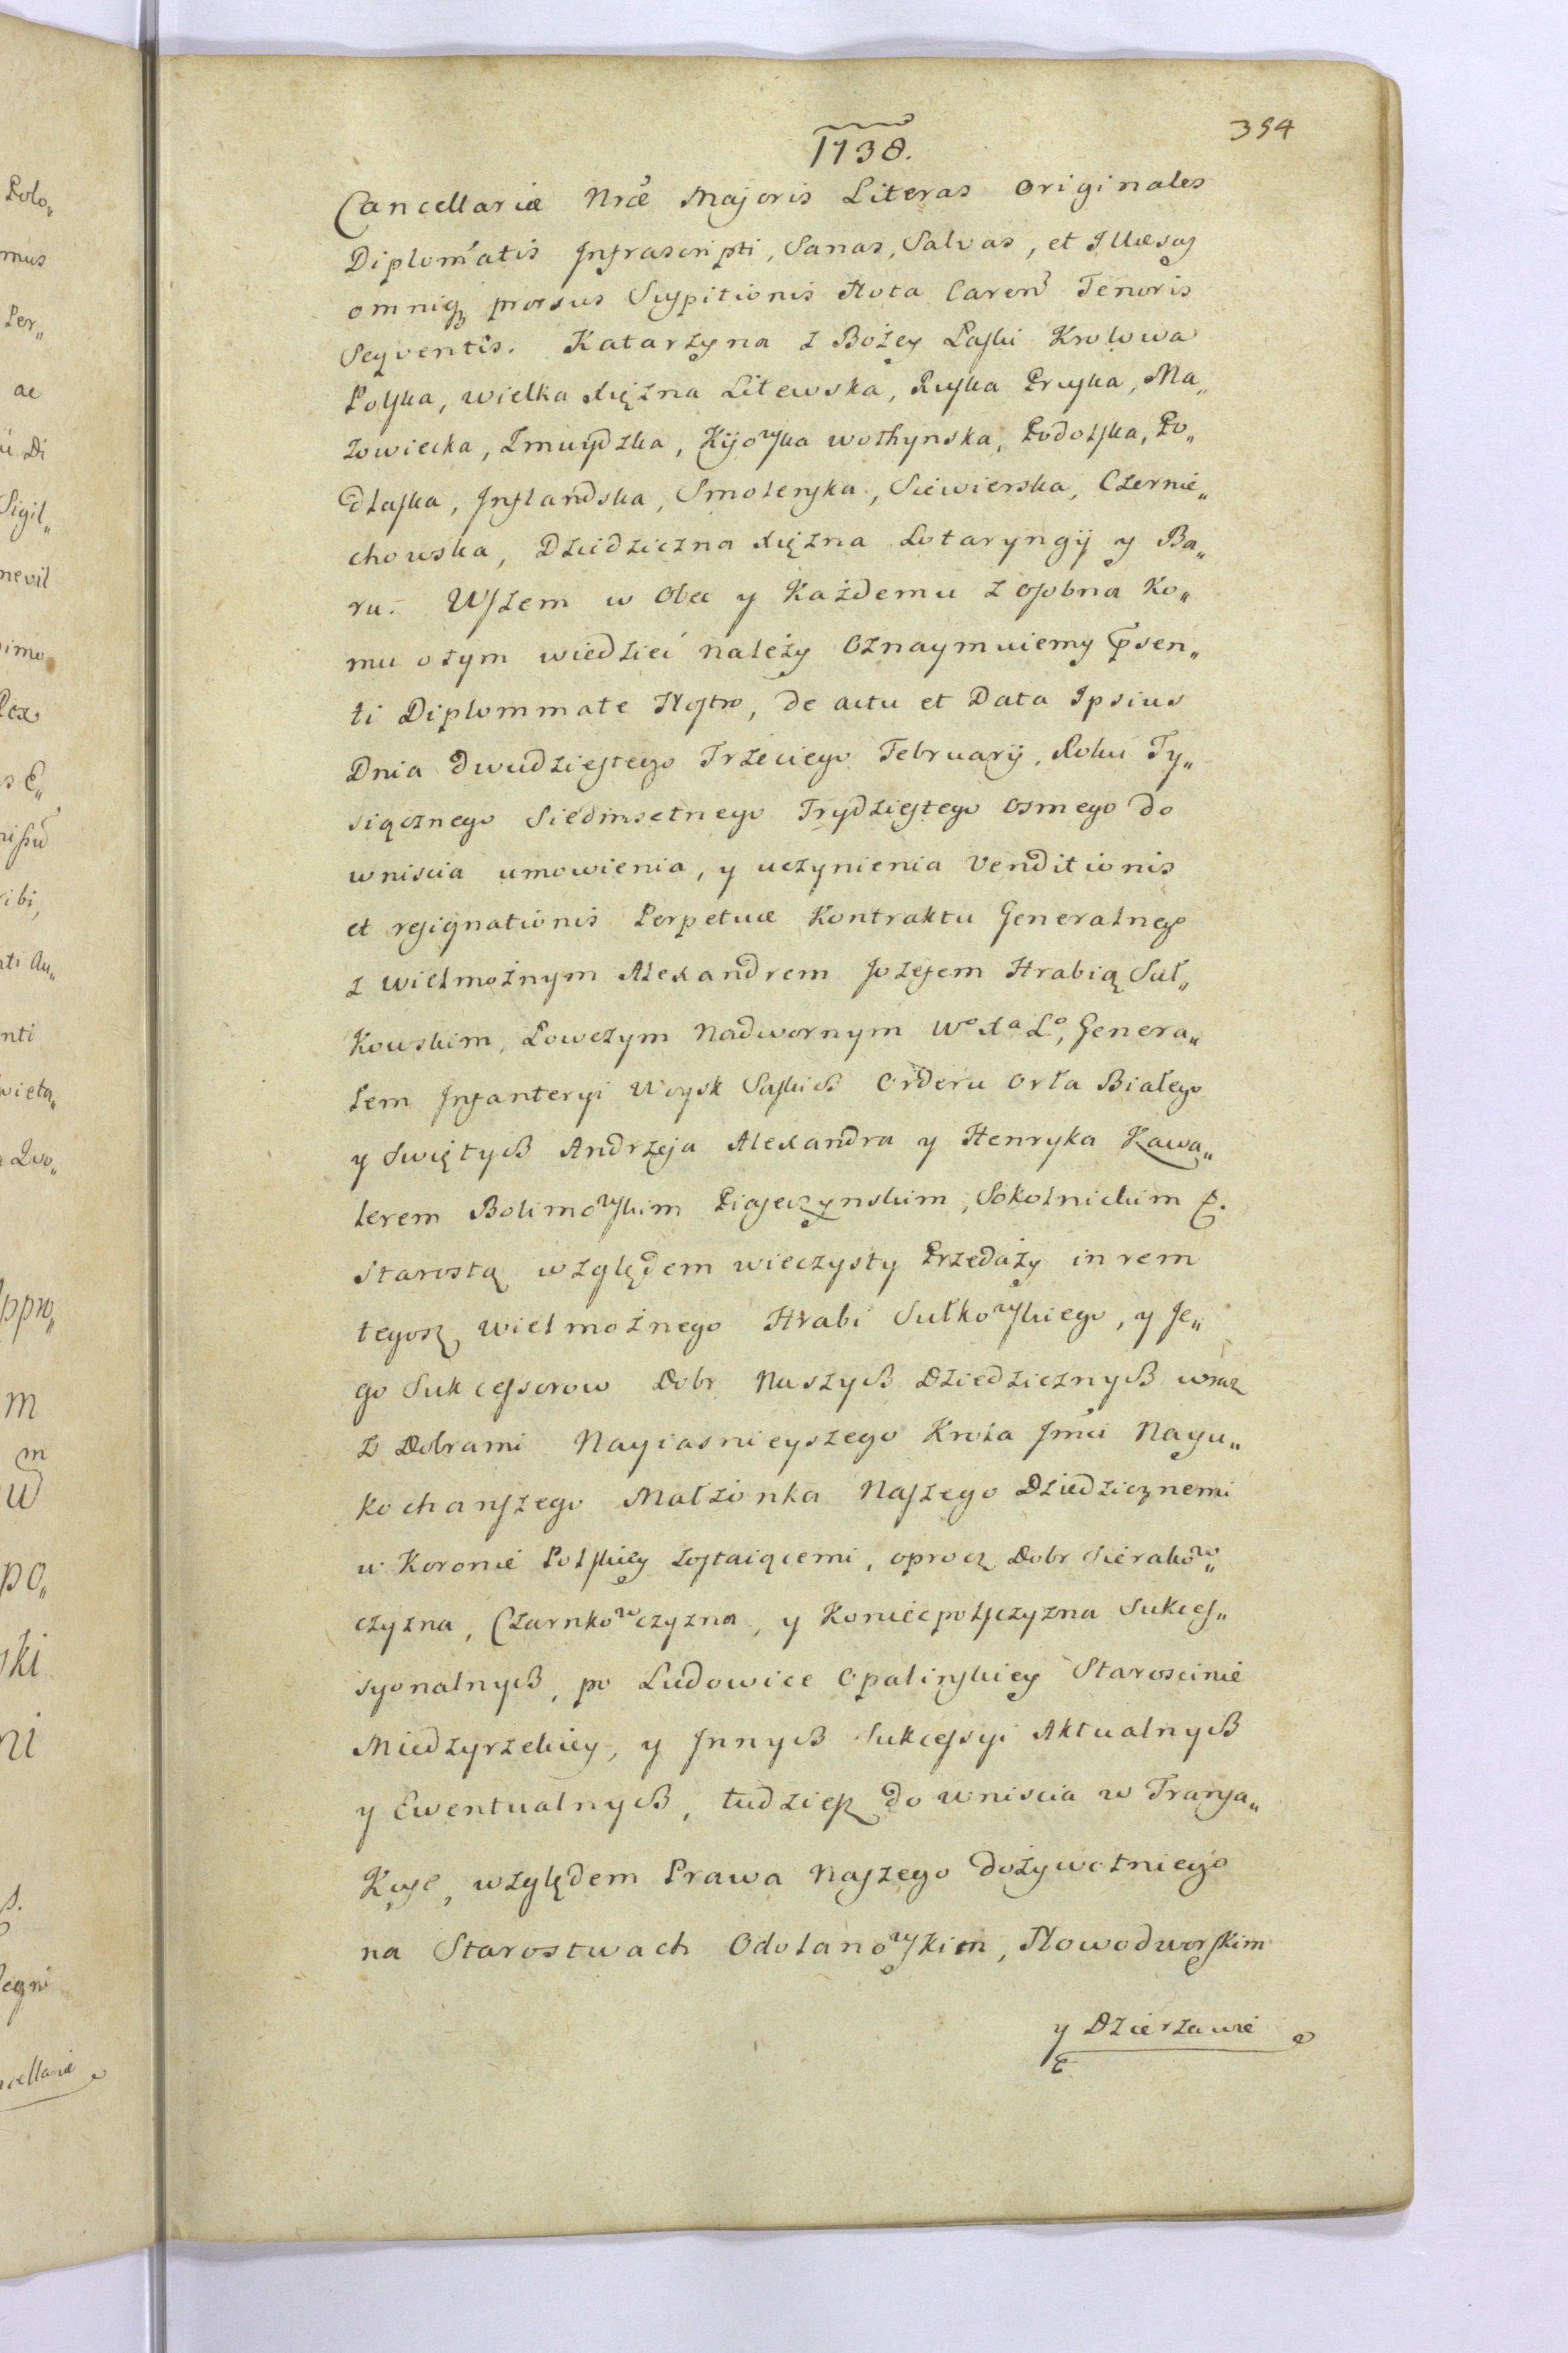 354
1738.
Cancellariæ Nræ Majoris Literas originales
Diplomatis Infrascripti, Sanas, Salvas, et Illæsas
omniq₃ prorsus Suspitionis Nota Caren̄ Tenoris
Seqventis. Katarzyna z Bożey Łaski Krolowa
Polska, wielka Xiężna Litewska, Ruska Pruska, Ma„
zowiecka, Zmuydzka, Kijowska wołhynska, Podolska, Po„
dlaska, Inflandska, Smolenska, Siewierska, Czernie„
chowska, Dziedziczna Xiężna Lotaryngij y Ba„
ru. Wszem w Obec y Każdemu z osobna Ko„
mu otym wiedzieć należy Oznaymuiemy Psen„
ti Diplommate Nostro, de actu et Data Ipsius
Dnia dwudziestego Trzeciego Februarij, Roku Ty„
siącznego Siedmsetnego Trydziestego osmego do
wniscia umowienia, y uczynienia Venditionis
et resignationis Perpetuæ Kontraktu Generalnego
z wielmożnym Alexandrem Jozefem Hrabią Suł„
Kowskim, Łowczym Nadwornym Wo Xa Lo, Genera„
łem Infanteryi Woysk Saskich Orderu Orła Białego
y Swiętych Andrzeja Alexandra y Henryka Kawa„
lerem Bolimowskim Piaseczynskim, Sokolnickim &.
Starostą względem wieczysty Przedaży in rem
tegosz wielmożnego Hrabi Sułkowskiego, y Je„
go Sukcessorow Dobr Naszych Dziedzicznych wraz
z Dobrami Nayiasnieyszego Krola Jmci Nayu„
kochanszego Małżonka Naszego Dziedzicznemi
w Koronie Polskiey zostaiącemi, oprocz Dobr Sierakow„
czyzna, Czarnkowczyzna, y Koniecpolszczyzna Sukces„
syonalnych, po Ludowice Opalinskiey Starościnie
Miedzyrzekiey, y Innych Sukcessyi Aktualnych
y Ewentualnych, tudziesz do wniscia w Transa„
Kcye, względem Prawa Naszego dożywotniego
na Starostwach Odolanowskim, Nowodworskim
y Dzierzawie
Polo„
mus
Per„
ac
Di
Sigil„
nevil
Rex
ibi,
nti
wieta„
m
m
po„
ski
ni
cellariæ